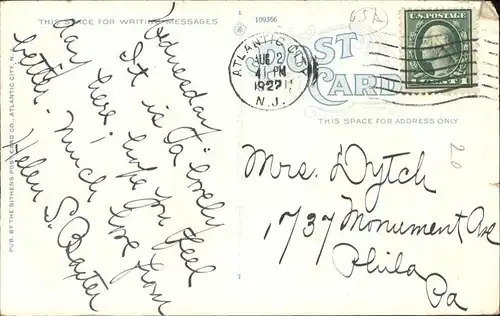 THIS SPACE FOR WRITING MESSAGES
109366
POST CARD
THIS SPACE FOR ADDRESS ONLY
PUB. BY THE SITHENS POST CARD CO., ATLANTIC CITY, N. J.
Wednesday
It is a lovely
day here. hope you feel
better. Much love from
Helen S. Baxter
ATLANTIC CITY
AUG 2
4 PM
1922
N.J.
U.S. POSTAGE
Mrs. Dytch
1737 Monument Ave
Phila
Pa
20